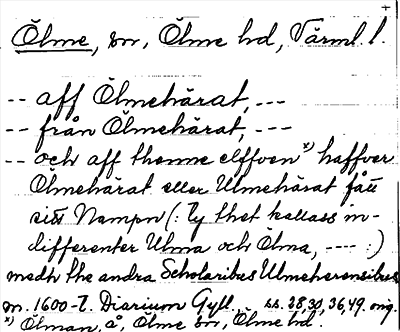 +
Ölme, sn, Ölme hd, Värml. l.
-- aff Ölmehärat, ---
-- från Ölmehärat, ---
-- och aff thenne elffven x) haffver
Ölmehärat eller Ulmehärat fått
sitt Nampn (: Ty thet kallass in-
differenter Ulma och Ölma, ---- :)
medh the andra Scholaribus Ulmeherensibus
m. 1600-t. Diarium Gyll. ss. 28, 30, 36, 49. orig.
x) Ölman, å, Ölme sn, Ölme hd